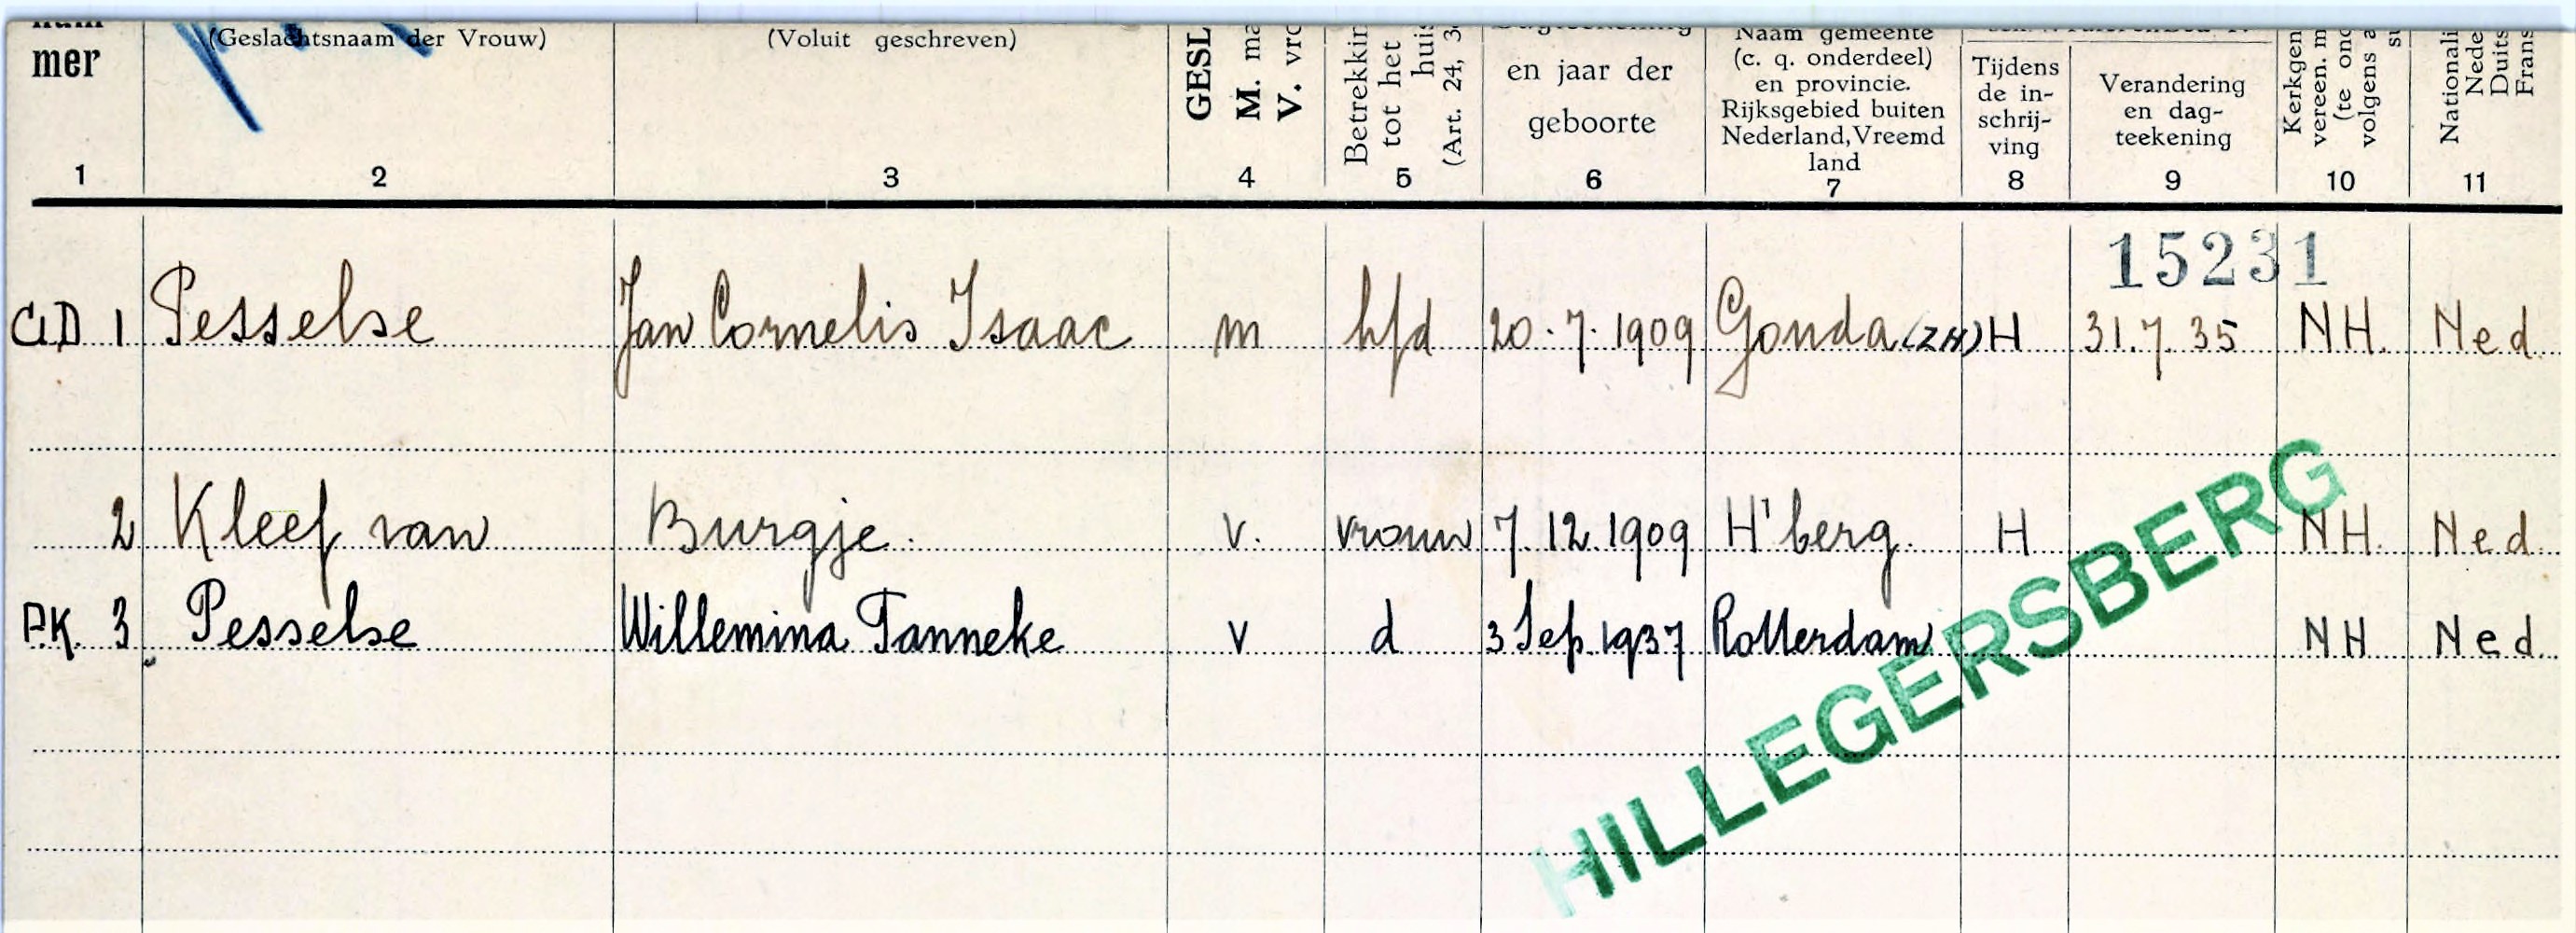 mer
(Geslachtsnaam der Vrouw)
(Voluit geschreven)
GESL
M. ma
V. vro
Betrekkin
tot het
huis
(Art. 24, 3
en jaar der
geboorte
Naam gemeente
(c. q. onderdeel)
en provincie.
Rijksgebied buiten
Nederland, Vreemd
land
Tijdens
de in-
schrij-
ving
Verandering
en dag-
teekening
Kerkgen
vereen. m
(te ond
volgens a
su
Nationali
Nede
Duits
Frans
1 2 3 4 5 6 7 8 9 10 11
15231
1 Pesselse Jan Cornelis Isaac m hfd 20.7.1909 Gouda (ZH) H 31.7.35 NH. Ned.
2 Kleef van Burgje. v. vrouw 7.12.1909 H'berg. H NH. Ned.
P.K. 3 Pesselse Willemina Tanneke v d 3 Sep. 1937 Rotterdam NH Ned.
HILLEGERSBERG